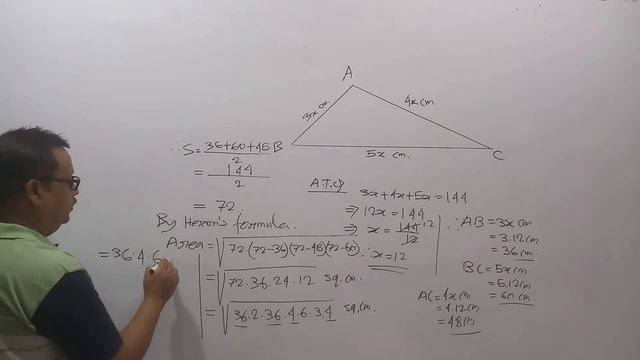 A
3x cm.
4x cm.
B
5x cm.
C
∴ S = 36+60+48
2
= 144
2
= 72.
A.T.Q
3x+4x+5x = 144
⇒ 12x = 144
⇒ x = 144 12
12
∴ x = 12
∴ AB = 3x cm
= 3.12 cm
= 36 cm.
BC = 5x cm
= 5.12 cm
= 60 cm.
AC = 4x cm
= 4.12 cm
= 48 cm
By Heron's formula.
Area = √72.(72-36)(72-48)(72-60)
= √72.36.24.12 sq.cm.
= √36.2.36.4.6.3.4 sq.cm.
= 36.4.6